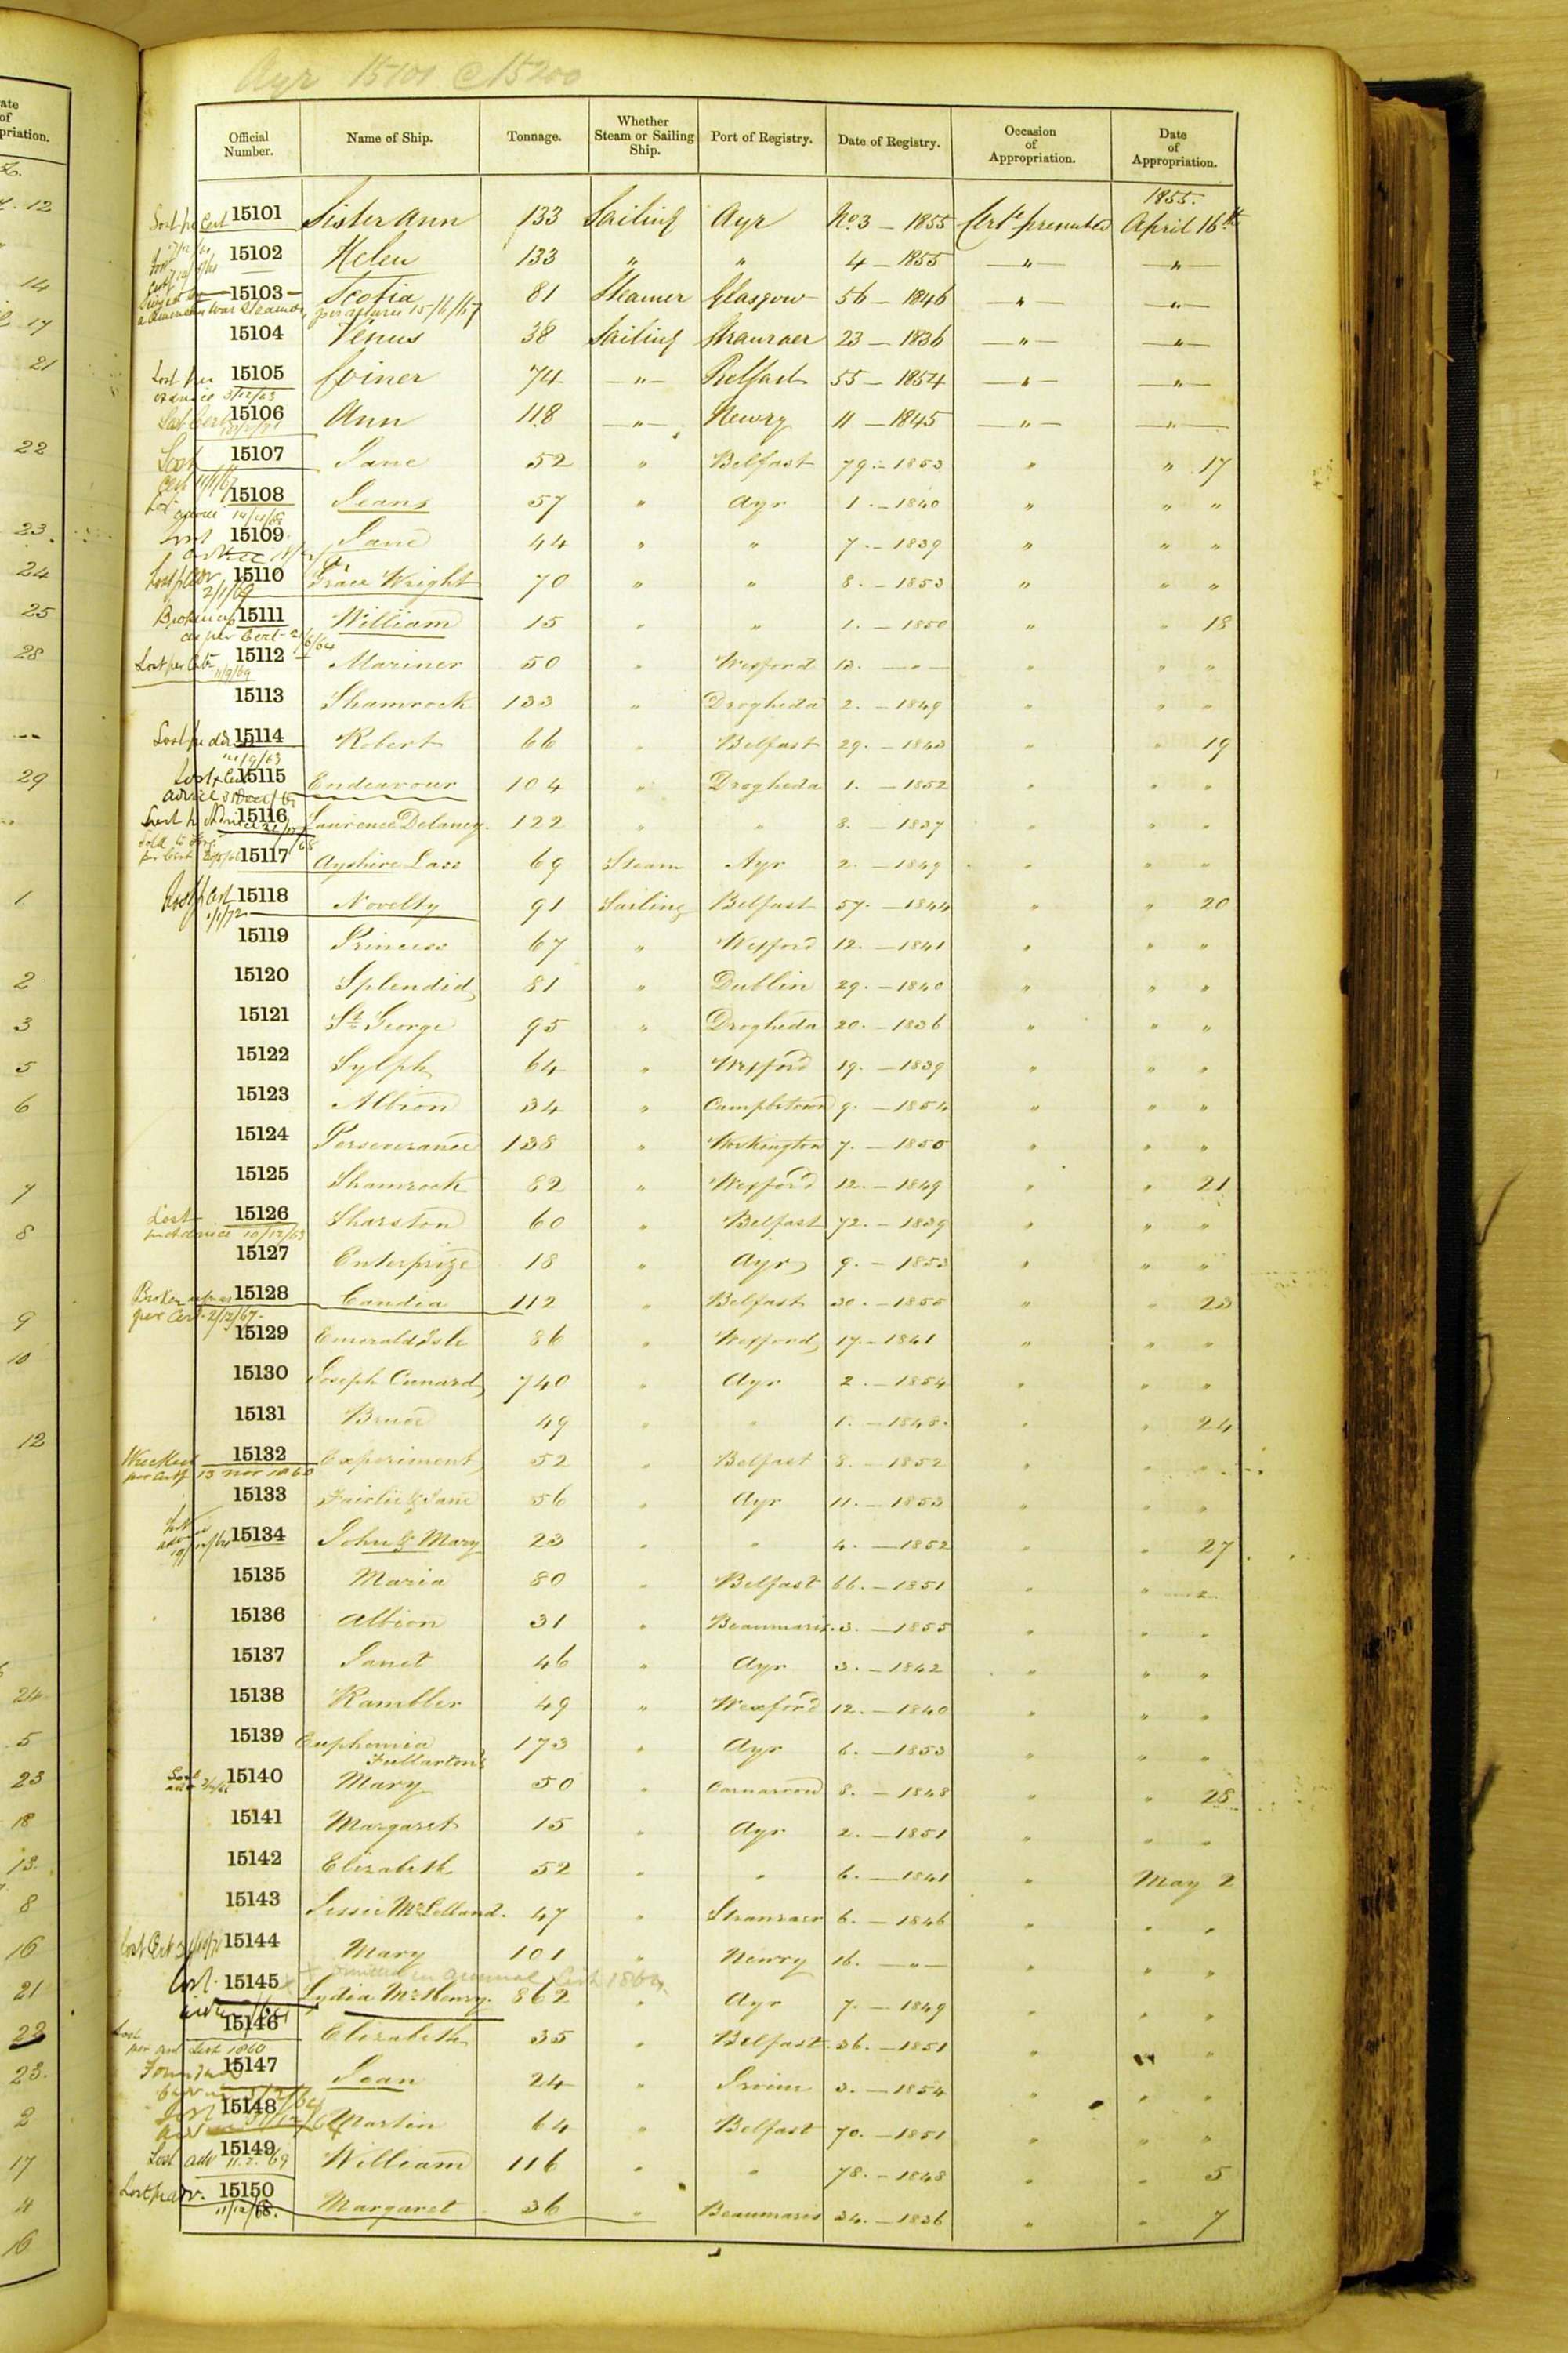 Ayr 15101 @ 15200
Official Number. Name of Ship. Tonnage. Whether Steam or Sailing Ship. Port of Registry. Date of Registry. Occasion of Appropriation. Date of Appropriation.
1855.
15101 Sister Ann 133 Sailing Ayr No. 3 — 1855 Certe. presented April 16th
15102 Helen 133 " " 4 — 1855 — " — — " —
15103 Scotia 81 Steamer Glasgow 56 — 1846 — " — — " —
a American War Steamer, per return 15/11/67
15104 Venus 38 Sailing Stranraer 23 — 1836 — " — — " —
Lost per 15105 Joiner 74 — " — Belfast 55 — 1854 — " — — " —
advice 3/12/63
Lost Cert 15106 Ann 118 — " — Newry 11 — 1845 — " — — " —
Lost 15107 Jane 52 " Belfast 79. — 1853 " " 17
15108 Jeans 57 " Ayr 1. — 1840 " " "
Lost 15109 Jane 44 " " 7. — 1839 " " "
15110 Grace Wright 70 " " 8. — 1853 " " "
2/1/69
Broken up 15111 William 15 " " 1. — 1850 " " 18
as per Cert - 21/6/64
Lost per Cert 15112 Mariner 50 " Wexford 13. — " — " " "
11/9/69
15113 Shamrock 133 " Drogheda 2. — 1849 " " "
Lost per adv 15114 Robert 66 " Belfast 29. — 1843 " " 19
15115 Endeavour 104 " Drogheda 1. — 1852 " " "
15116 Laurence Delaney. 122 " " 8. — 1837 " " "
15117 Ayshire Lass 69 Steam Ayr 2. — 1849 " " "
Lost p Cert 15118 Novelty 91 Sailing Belfast 57. — 1844 " " 20
1/1/72
15119 Princess 67 " Wexford 12. — 1841 " " "
15120 Splendid 81 " Dublin 29. — 1840 " " "
15121 St. George 95 " Drogheda 20. — 1836 " " "
15122 Sylph 64 " Wexford 19. — 1839 " " "
15123 Albion 34 " Campbeltown 9. — 1854 " " "
15124 Perseverance 138 " Workington 7. — 1850 " " "
15125 Shamrock 82 " Wexford 12. — 1849 " " 21
Lost 15126 Sharston 60 " Belfast 72. — 1839 " " "
per Advice 10/12/63
15127 Enterprize 18 " Ayr 9. — 1853 " " "
Broken up as 15128 Candia 112 " Belfast 30. — 1855 " " 23
per Cert. 2/12/67.
15129 Emerald Isle 86 " Wexford 17. — 1841 " " "
15130 Joseph Cunard 740 " Ayr 2. — 1854 " " "
15131 Bruce 49 " " 1. — 1848. " " 24
Wrecked 15132 Experiment 52 " Belfast 8. — 1852 " " "
per Certf 13 Nov 1860
15133 Fairlie & Jane 56 " Ayr 11. — 1853 " " "
15134 John & Mary 23 " " 4. — 1852 " " 27
15135 Maria 80 " Belfast 66. — 1851 " " "
15136 Albion 31 " Beaumaris. 3. — 1855 " " "
15137 Janet 46 " Ayr 3. — 1842 " " "
15138 Rambler 49 " Wexford 12. — 1840 " " "
15139 Euphemia 173 " Ayr 6. — 1853 " " "
Fullarton
15140 Mary 50 " Carnarvon 8. — 1848 " " 28
15141 Margaret 15 " Ayr 2. — 1851 " " "
15142 Elizabeth 52 " " 6. — 1841 " May 2
15143 Jessie McLelland. 47 " Stranraer 6. — 1846 " " "
15144 Mary 101 " Newry 16. — " — " " "
X omitted in annual List 1864
Lost 15145 Lydia McHenry. 862 " Ayr 7. — 1849 " " "
15146 Elizabeth 35 " Belfast 36. — 1851 " "
per List 1860
15147 Jean 24 " Irvine 3. — 1854 " " "
15148 Martin 64 " Belfast 70. — 1851 " " "
Lost adv 15149 William 116 " " 78. — 1848 " " 5
11.2.69
Lost p adv. 15150 Margaret 36 " Beaumaris 34. — 1836 " " 7
11/12/68.